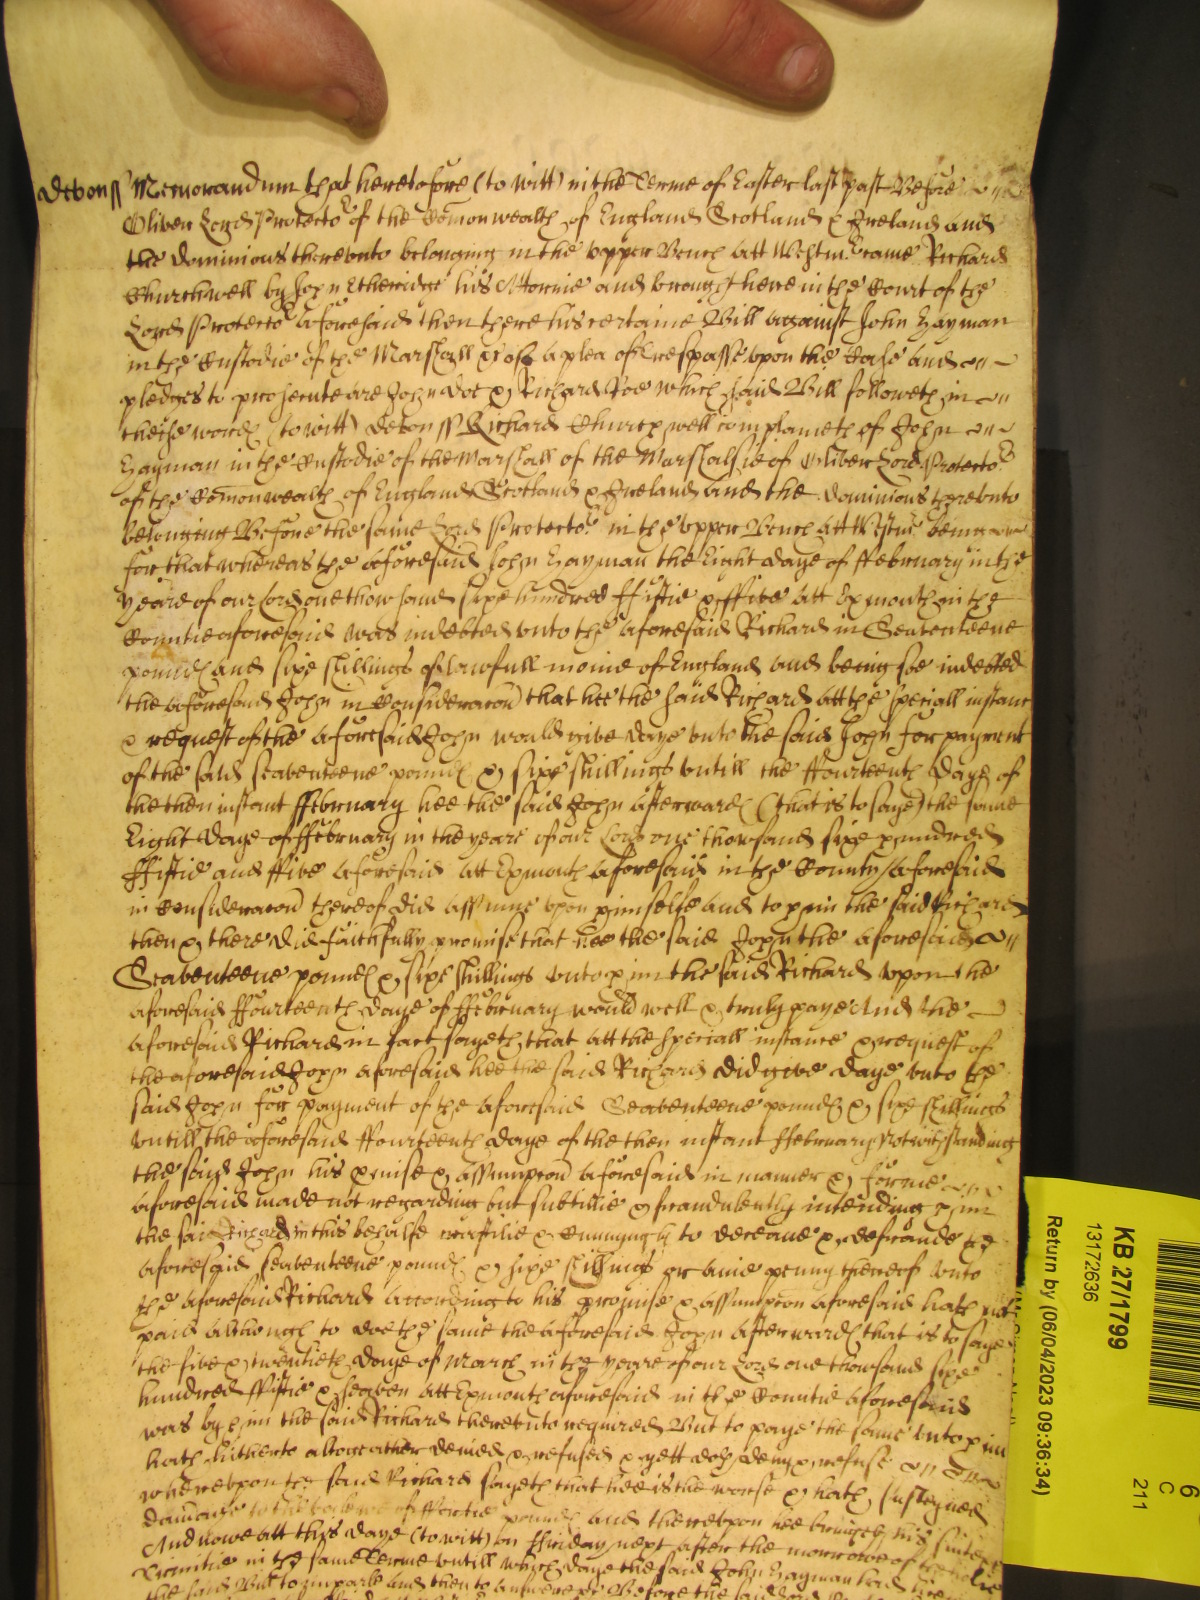 Devon ss Memorandum that heretofore (to witt) in the Terme of Easter last past Before
Oliver Lord Protector of the Comonwealth of England Scotland & Ireland and
the dominions thereunto belonging in the upper Bench att Westmr came Richard
Churchwell by John Etheridge his Attornie and brought here in the Court of the
Lord Protector aforesaid then there his certaine Bill against John Hayman
in the Custodie of the Marshall &c of a plea of trespasse upon the Case and
pledges to prosecute are John Doe & Richard Roe which said Bill followeth in
theise words (to witt) Devon ss Richard Churchwell complaineth of John
Hayman in the Custodie of the Marshall of the Marshalsie of Oliver Lord Protector
of the Comonwealth of England Scotland & Ireland and the dominions thereunto
belonging Before the same Lord Protector in the upper Bench att Westmr being
for that whereas the aforesaid John Hayman the Eight daye of ffebruary in the
yeare of our Lord one thowsand sixe hundred ffiftie & ffive att Exmouth in the
Countie aforesaid was indebted unto the aforesaid Richard in Seaventeene
pounds and sixe shillings of lawfull monie of England and being soe indebted
the aforesaid John in Consideracon that hee the said Richard att the speciall instanc
& request of the aforesaid John would give daye unto the said John for payment
of the said seaventeene pounds & sixe shillings untill the ffourteenth daye of
the then instant ffebruary hee the said John afterwards (that is to saye) the same
Eight daye of ffebruary in the yeare of our Lord one thowsand sixe hundred
ffiftie and ffive aforesaid att Exmouth aforesaid in the County aforesaid
in Consideracon thereof did assume upon himselfe and to him the said Richard
then & there did faithfully promise that hee the said John the aforesaid
Seaventeene pounds & sixe shillings unto him the said Richard upon the
aforesaid ffourteenth daye of ffebruary would well & truly paye And the
aforesaid Richard in fact sayeth that att the speciall instance & request of
the aforesaid John aforesaid hee the said Richard did give daye unto the
said John for payment of the aforesaid Seaventeene pounds & sixe shillings
untill the aforesaid ffourteenth daye of the then instant ffebruary Notwithstanding
the said John his pmise & assumpcon aforesaid in manner & forme
aforesaid made not regarding but subtillie & fraudulently intending him
the said Richard in this behalfe craftilie & Cunningly to deceave & defraude the
aforesaid seaventeene pounds & sixe shillings or anie penny thereof unto
the aforesaid Richard according to his promise & assumpcon aforesaid hath not
paid although to doe the same the aforesaid John afterwards that is to saye
the five & twentieth daye of March in the yeare of our Lord one thowsand sixe
hundred ffiftie & seaven att Exmouth aforesaid in the Countie aforesaid
was by him the said Richard thereunto required But to paye the same unto him
hath hitherto altogeather denied & refused & yett doth deny & refuse
whereupon the said Richard sayeth that hee is the worse & hath susteyned
damage to the value of ffortie pounds and thereupon hee bringeth his suite &c
And nowe att this daye (to witt) on ffriday next after the morrowe of the holie
Trinitie in the same Terme untill which daye the said John Hayman had
the said Bill to imparle and then to answere &c Before the said Lord
KB 27/1799
13172636
Return by (06/04/2023 09:36:34)
6
C
211